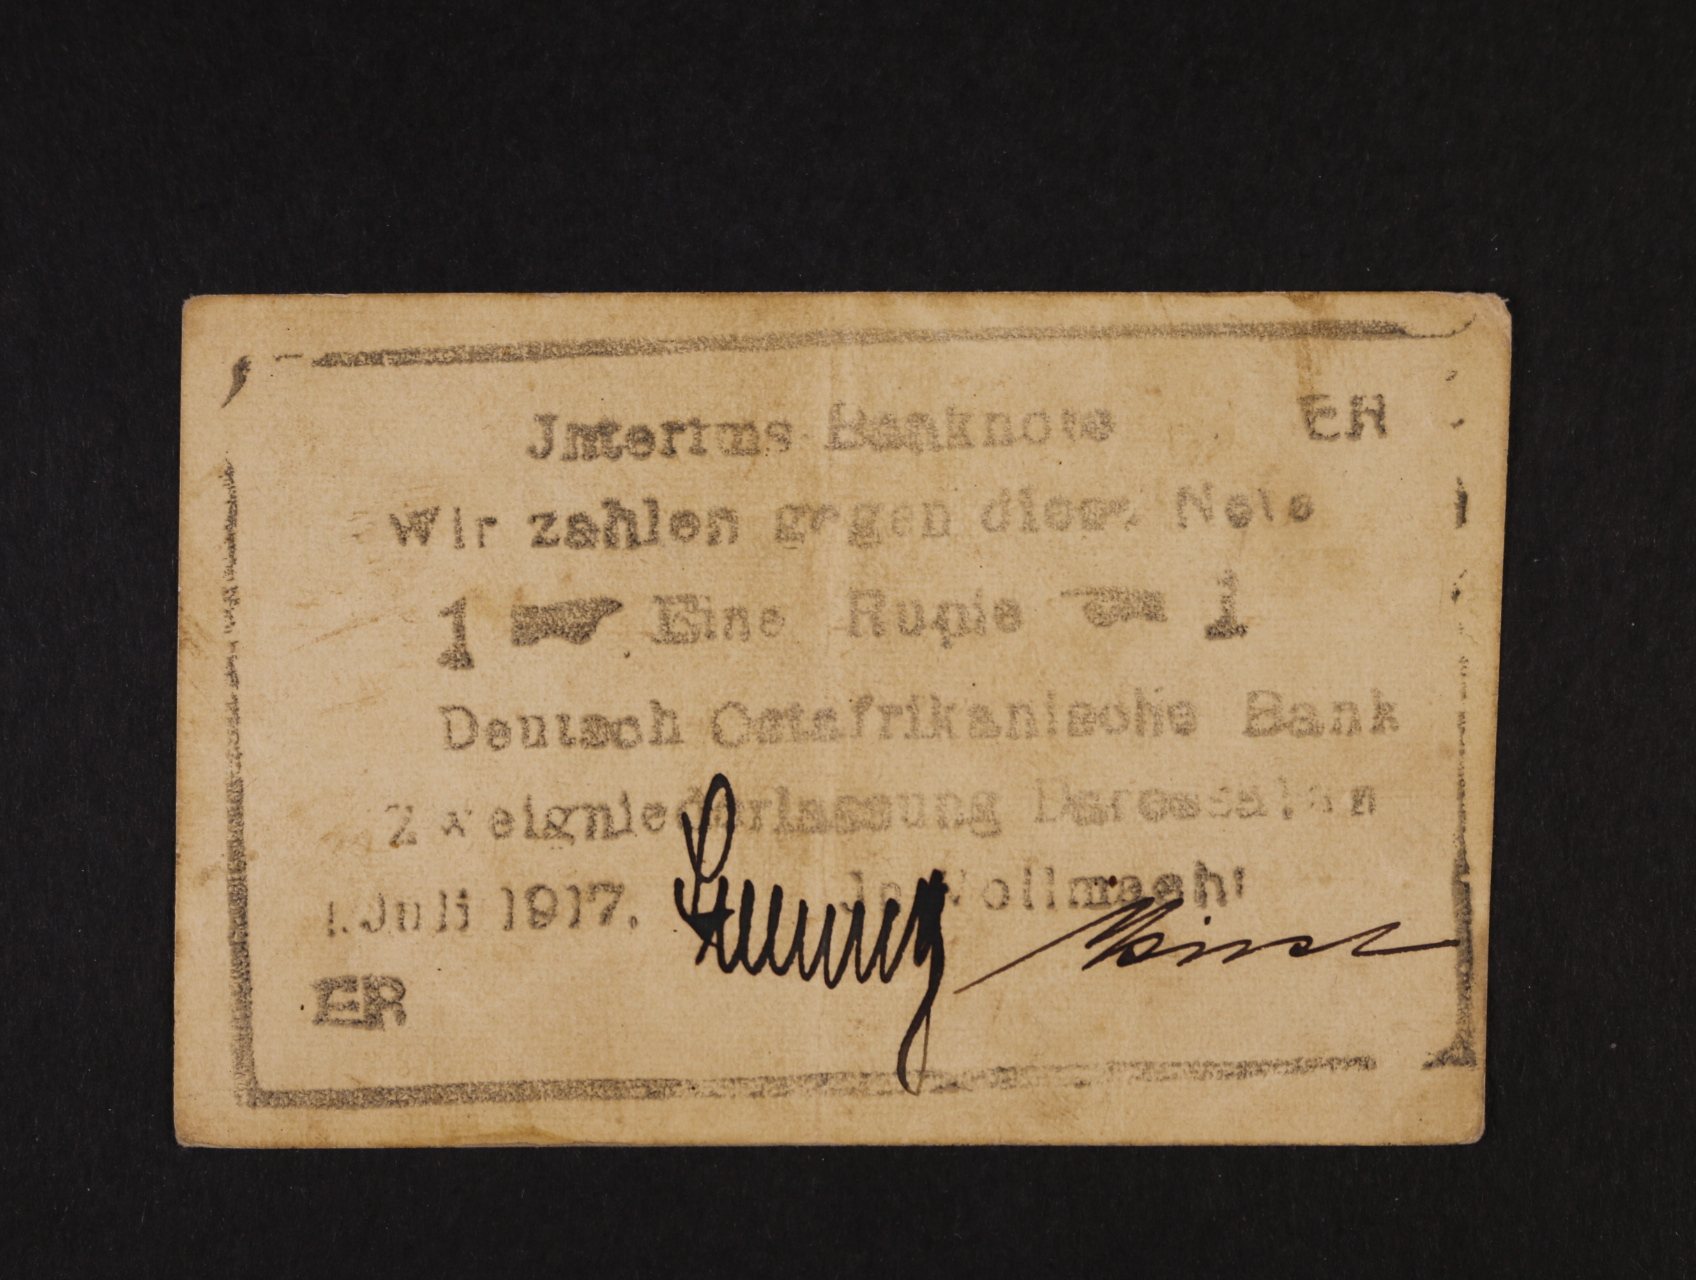 Jnterims Banknote EH
Wir zahlen gegen diese Note
1 Eine Rupie 1
Deutsch Ostafrikanische Bank
Zweigniederlassung Daressalam
1.Juli 1917. Jn Vollmacht
ER